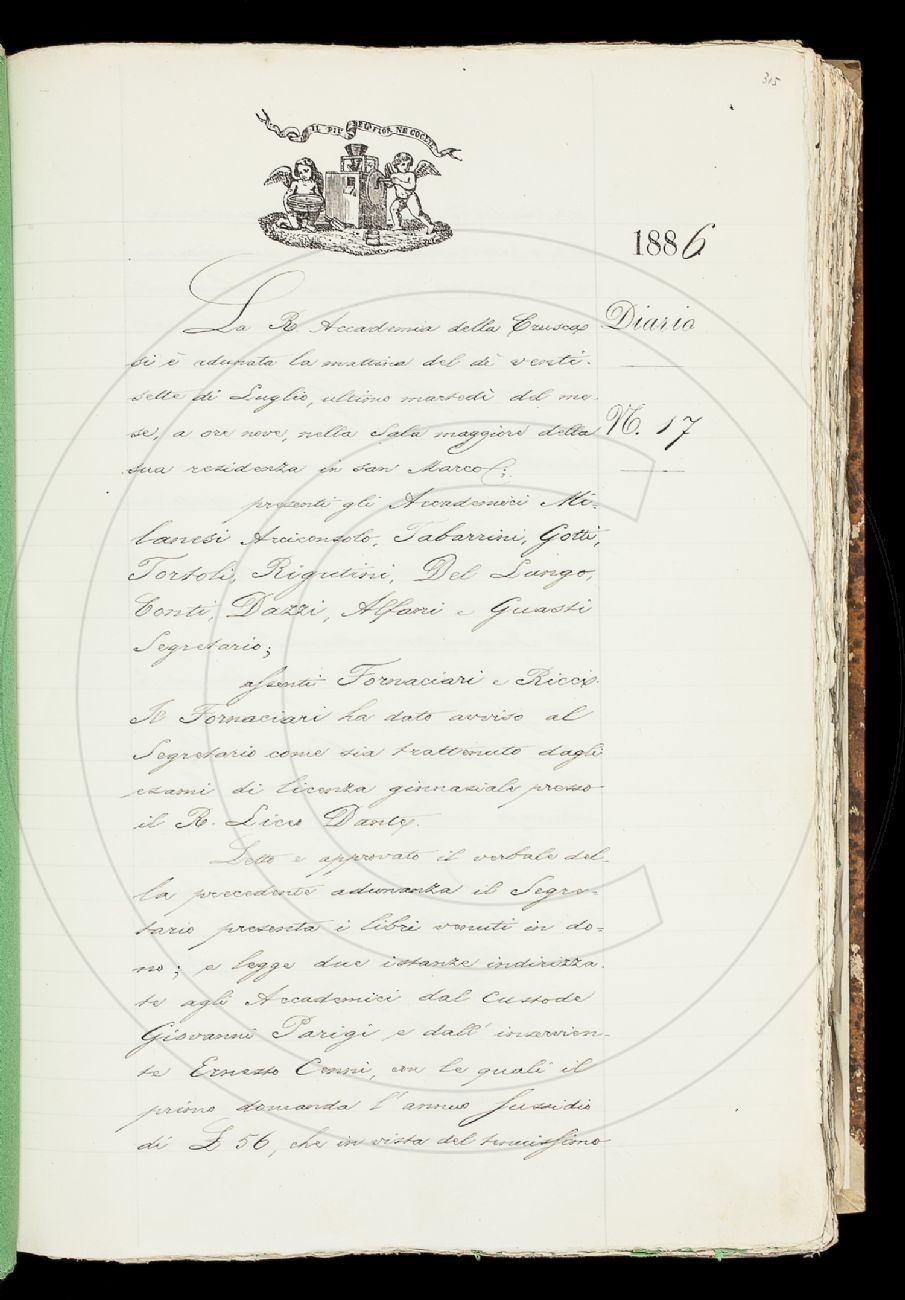 315
IL PIU BEL FIOR NE COGLIE
1886
Diario
N. 17
La R Accademia della Crusca
si è adunata la mattina del dì venti-
sette di Luglio, ultimo martedì del me-
se, a ore nove, nella Sala maggiore della
sua residenza in san Marco:
presenti gli Accademici Mi-
lanesi Arciconsolo, Tabarrini, Gotti,
Tortoli, Rigutini, Del Lungo,
Conti, Dazzi, Alfani e Guasti
Segretario;
assenti Fornaciari e Ricci.
Il Fornaciari ha dato avviso al
Segretario come sia trattenuto dagli
esami di licenza ginnasiale presso
il R. Liceo Dante.
Letto e approvato il verbale del-
la precedente adunanza il Segre-
tario presenta i libri venuti in do-
no; e legge due istanze indirizza-
te agli Accademici dal Custode
Giovanni Parigi e dall' inservien-
te Ernesto Cenni, con le quali il
primo domanda l' annuo sussidio
di £ 56, che in vista del tenuissimo